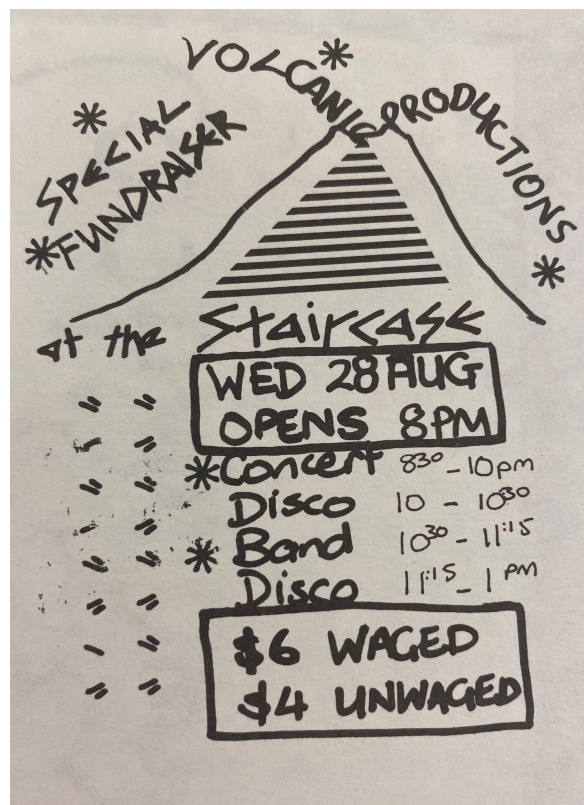 VOLCANIC PRODUCTIONS
SPECIAL
FUNDRAISER
at the Staircase
WED 28 AUG
OPENS 8PM
Concert 8³⁰ - 10pm
Disco 10 - 10³⁰
Band 10³⁰ - 11:15
Disco 11:15 - 1 PM
$6 WAGED
$4 UNWAGED